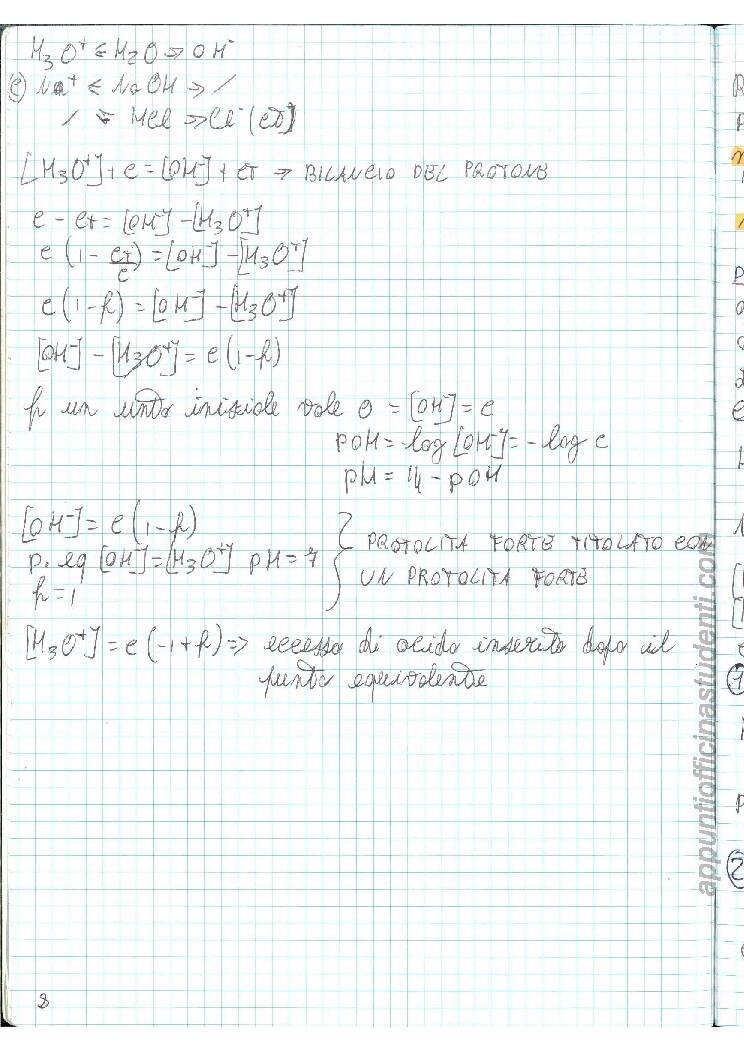 H₃O⁺ ⇐ H₂O ⇒ OH⁻
(c) Na⁺ ⇐ NaOH ⇒ /
/ ⇐ HCl ⇒ Cl⁻ (cT)
[H₃O⁺] + c = [OH⁻] + cT ⇒ BILANCIO DEL PROTONE
c - cT = [OH⁻] - [H₃O⁺]
c (1 - cT/c) = [OH⁻] - [H₃O⁺]
c (1 - f) = [OH⁻] - [H₃O⁺]
[OH⁻] - [H₃O⁺] = c (1 - f)
f un unto iniziale vale 0 = [OH⁻] = c
pOH = -log [OH⁻] = -log c
pH = 14 - pOH
[OH⁻] = c (1 - f)
p. eq [OH⁻] = [H₃O⁺] pH = 7
f = 1
PROTOLITA FORTE TITOLATO CON
UN PROTOLITA FORTE
[H₃O⁺] = c (-1 + f) ⇒ eccesso di acido inserito dopo il
punto equivalente
8
appuntiofficinastudenti.com